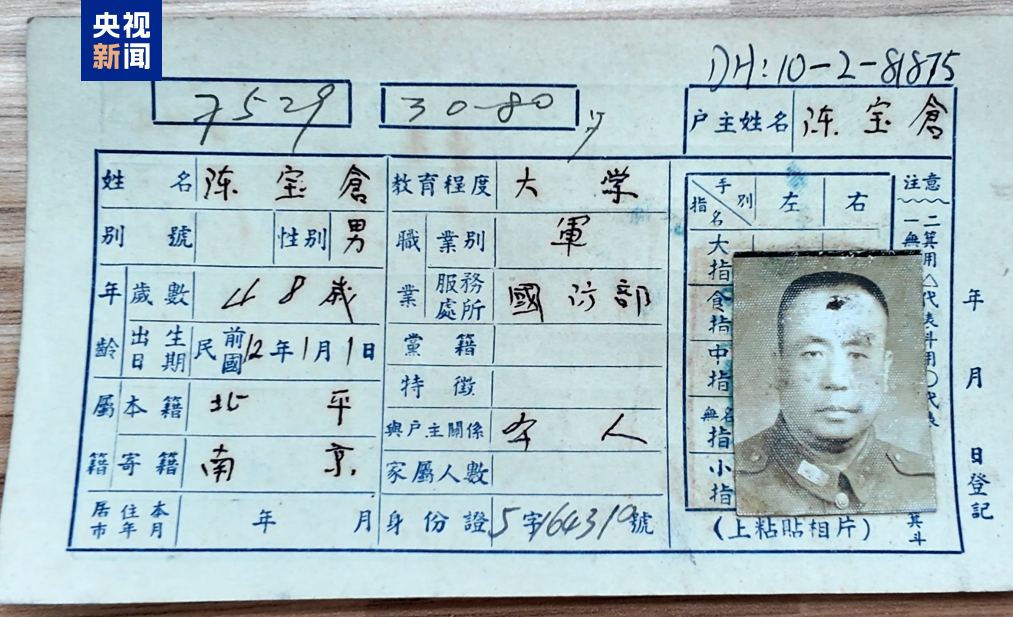 央视
新闻
DH:10-2-81875
7529
30-80
户主姓名 陈宝倉
姓名 陈宝倉
别號
性别 男
年齡
歲數 48歲
出生日期 民國前12年1月1日
屬籍
本籍 北平
寄籍 南京
居住本市年月 年 月
教育程度 大学
職業
業别 軍
服務處所 國防部
黨籍
特徵
與户主關係 本人
家屬人數
身份證 5字164319號
手别 左 右
指名
大指
食指
中指
無名指
小指
(上粘貼相片)
注意
二箕用△代表斗用○代表
一無
箕斗
年 月 日登記